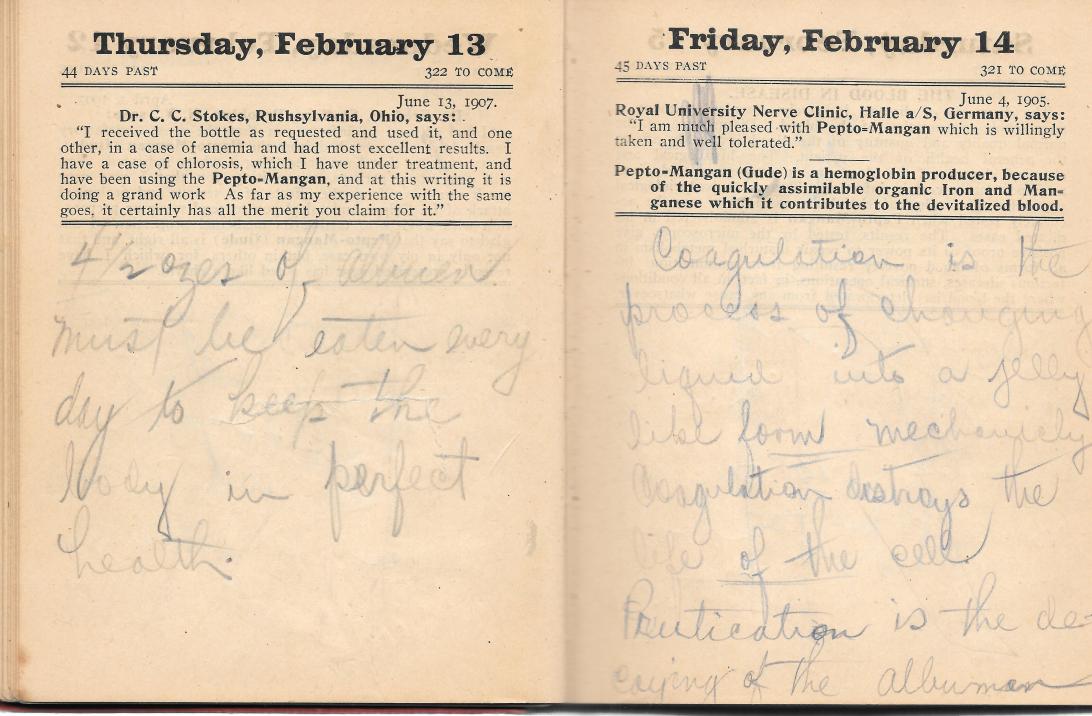 Thursday, February 13
44 DAYS PAST 322 TO COME
June 13, 1907.
Dr. C. C. Stokes, Rushsylvania, Ohio, says:
"I received the bottle as requested and used it, and one
other, in a case of anemia and had most excellent results. I
have a case of chlorosis, which I have under treatment, and
have been using the Pepto=Mangan, and at this writing it is
doing a grand work As far as my experience with the same
goes, it certainly has all the merit you claim for it."
4 1/2 ozes of
must be eaten every
day to keep the
body in perfect
health.
Friday, February 14
45 DAYS PAST 321 TO COME
June 4, 1905.
Royal University Nerve Clinic, Halle a/S, Germany, says:
"I am much pleased with Pepto=Mangan which is willingly
taken and well tolerated."
Pepto=Mangan (Gude) is a hemoglobin producer, because
of the quickly assimilable organic Iron and Man=
ganese which it contributes to the devitalized blood.
Coagulation is the
process of changing
liquid into a jelly
like form mechanicly
Coagulation destroys the
life of the cell.
is the de-
caying of the albuman